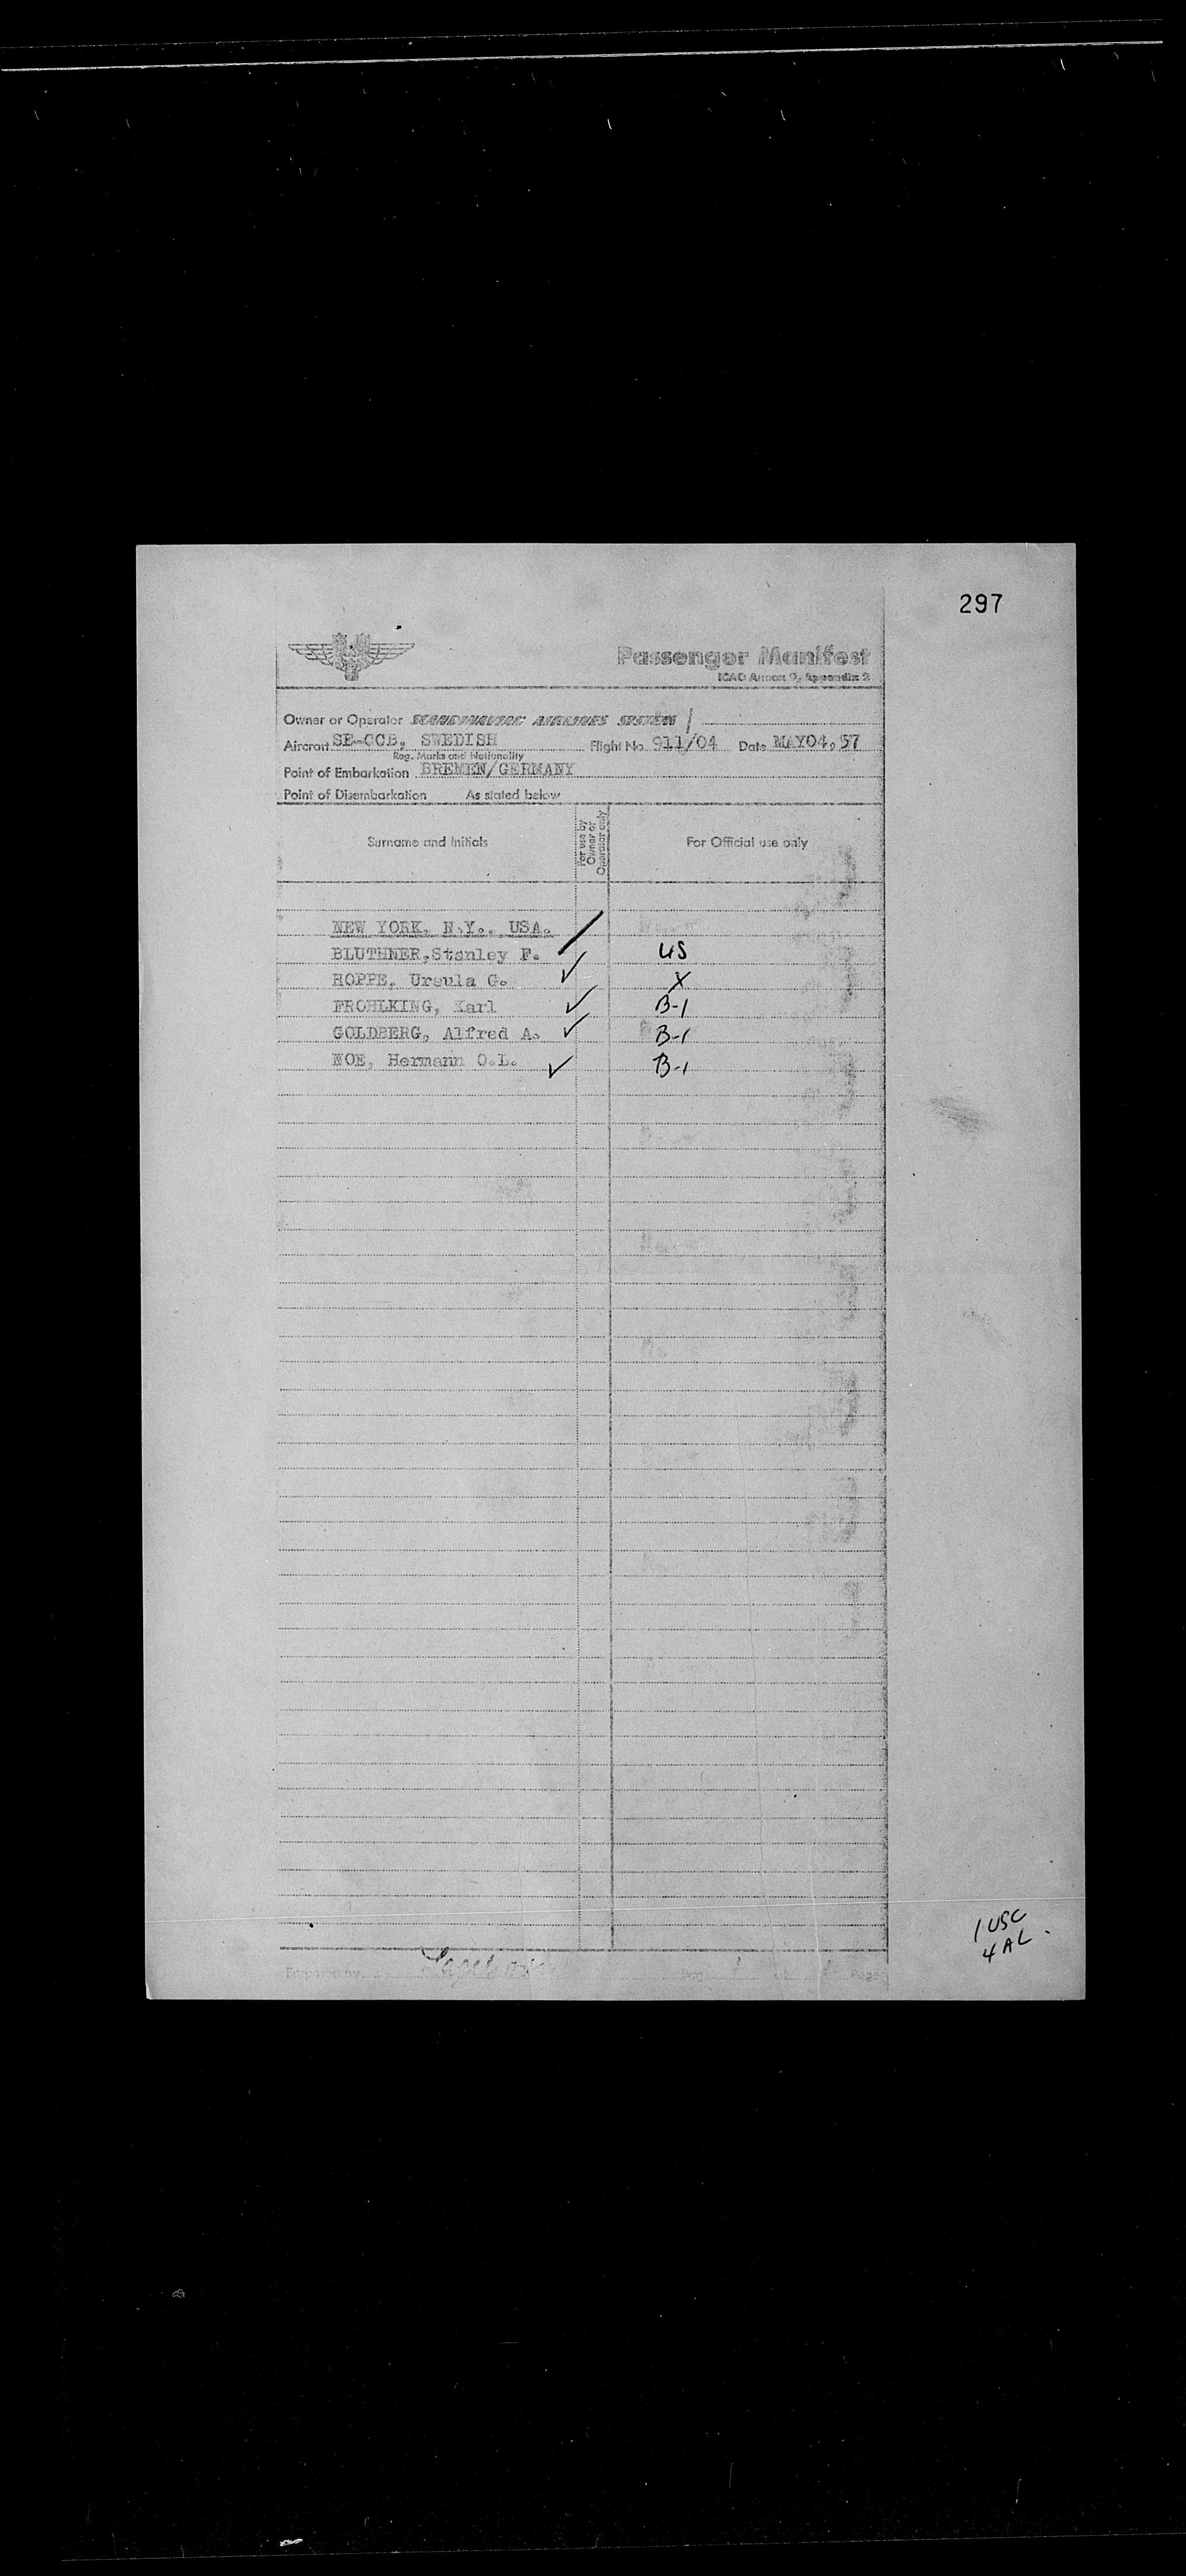 297
Passenger Manifest
ICAO Annex 9, Appendix 2
Owner or Operator SCANDINAVIAN AIRLINES SYSTEM
Aircraft SE-CCB, SWEDISH Flight No. 911/04 Date MAY04,57
Reg. Marks and Nationality
Point of Embarkation BREMEN/GERMANY
Point of Disembarkation As stated below
Surname and Initials For use by Owner or Operator only For Official use only
NEW YORK, N.Y., USA.
BLUTHNER,Stanley F. US
ROPPE, Ursula G. X
FROHLKING, Karl B-1
GOLDBERG, Alfred A. B-1
NOE, Hermann O.L. B-1
1 USC
4 AL
Page